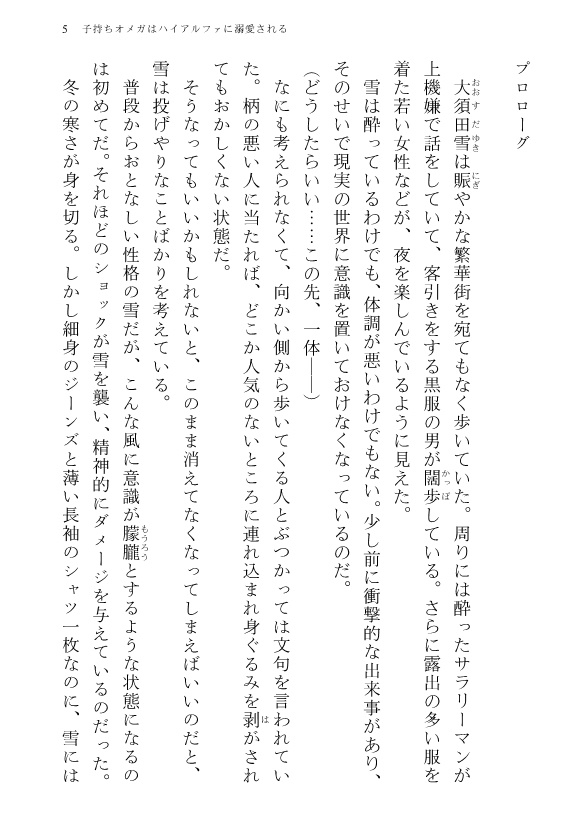 5 子持ちオメガはハイアルファに溺愛される
プロローグ
大須田雪は賑やかな繁華街を宛てもなく歩いていた。周りには酔ったサラリーマンが
上機嫌で話をしていて、客引きをする黒服の男が闊歩している。さらに露出の多い服を
着た若い女性などが、夜を楽しんでいるように見えた。
雪は酔っているわけでも、体調が悪いわけでもない。少し前に衝撃的な出来事があり、
そのせいで現実の世界に意識を置いておけなくなっているのだ。
(どうしたらいい……この先、一体――)
なにも考えられなくて、向かい側から歩いてくる人とぶつかっては文句を言われてい
た。柄の悪い人に当たれば、どこか人気のないところに連れ込まれ身ぐるみを剥がされ
てもおかしくない状態だ。
そうなってもいいかもしれないと、このまま消えてなくなってしまえばいいのだと、
雪は投げやりなことばかりを考えている。
普段からおとなしい性格の雪だが、こんな風に意識が朦朧とするような状態になるの
は初めてだ。それほどのショックが雪を襲い、精神的にダメージを与えているのだった。
冬の寒さが身を切る。しかし細身のジーンズと薄い長袖のシャツ一枚なのに、雪には